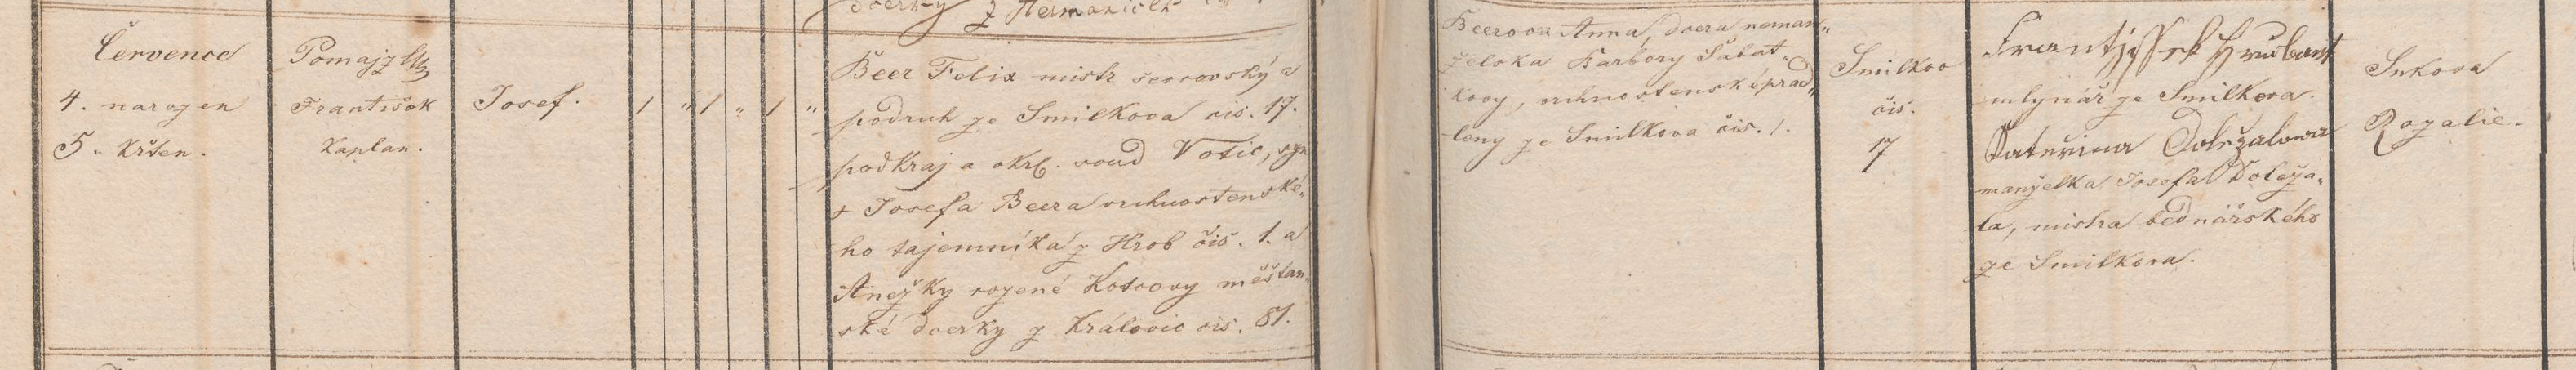 dcerky z Heřmaniček
Července
4. narozen
5. křten.
Pomajzl
František
kaplan.
Josef.
1 " 1 " 1 "
Beer Felix mistr ševcovský a
podruh ze Smilkova čis. 17.
podkraj a okrs. soud Votic, syn
+ Josefa Beera vrchnostenské-
ho tajemníka z Hrob čis. 1. a
Anežky rozené Kotrovy měštan-
ské dcerky z Královic čis. 81.
Beerova Anna, dcera neman-
želska Barbory Sabat-
kovy, vrchnostenské prad-
leny ze Smilkova čis. 1.
Smilkov
čis.
17
Frantjssek Hrubant
mlynář ze Smilkova.
Kateřina Doležalowa
manželka Josefa Doleža-
la, mistra bednářského
ze Smilkova.
Sukova
Rozalie.